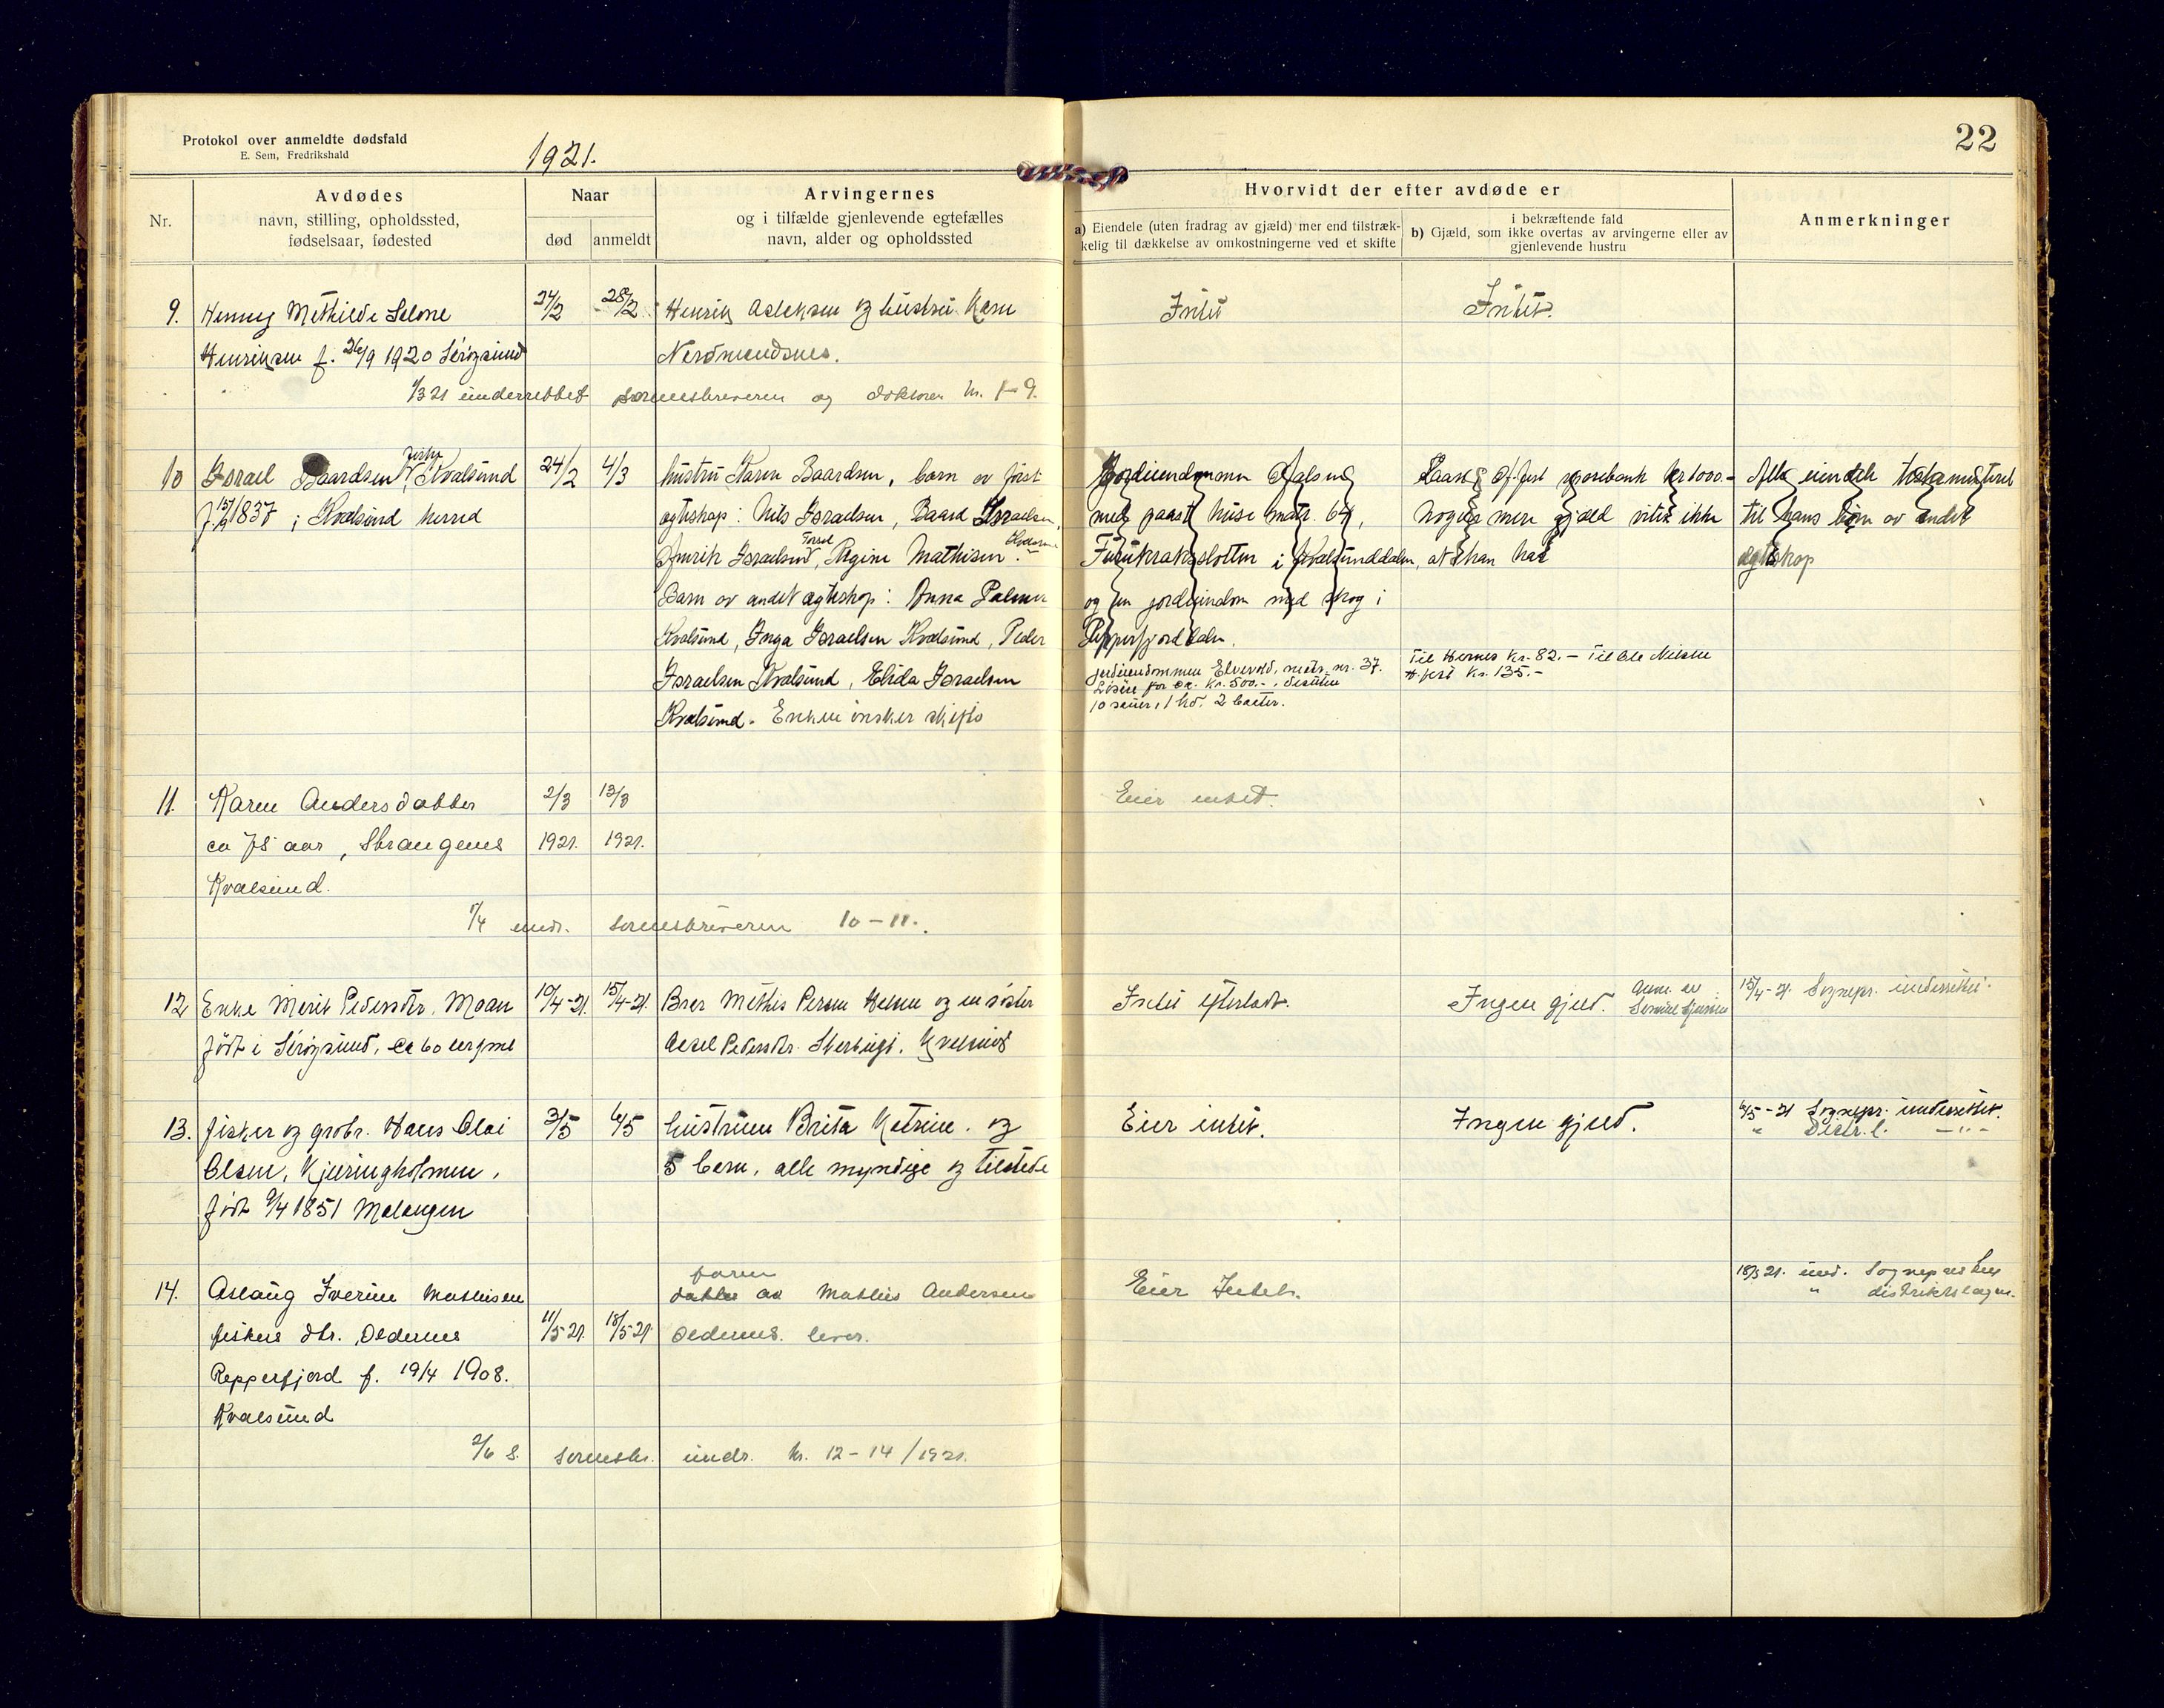 Protokol over anmeldte dødsfald
E. Sem, Fredrikshald
1921.
22
Nr.
Avdødes
navn, stilling, opholdssted,
fødselsaar, fødested
Naar
død
anmeldt
Arvingernes
og i tilfælde gjenlevende egtefælles
navn, alder og opholdssted
Hvorvidt der efter avdøde er
a) Eiendele (uten fradrag av gjæld) mer end tilstræk-
kelig til dækkelse av omkostningerne ved et skifte
i bekræftende fald
b) Gjæld, som ikke overtas av arvingerne eller av
gjenlevende hustru
Anmerkninger
9. Henny Methilde Selone 24/2 28/2 Henrik Aslaksen og hustru Karn Intet Intet.
Henriksen f. 26/9 1920 Sørøysund
1/3 21 underrettet sorenskriveren og doktoren nr. 8-9.
10 Israel Baardsen, Kvalsund 24/2 4/3 hustru Karen Baardsen, barn av først
f. 15/ 1837 i Kvalsund herred
egteskap: Nils Israelsen, Baard Israelsen,
Israelsen, Regine Mathisen.
Barn av andet egteskap: Anna
Kvalsund, Inga Israelsen Kvalsund, Peder
Israelsen Kvalsund, Elida Israelsen
Kvalsund. Enken ønsker skifte
Jordeiendommen
med paast. huse matr. 64,
i Kvalsunddalen,
og en jordeiendom med skog i
Repperfjorddalen.
jordeiendommen Elvevold, matr. nr. 37.
Løsøre for ca. kr. 500.-, desuten
10 sauer, 1 ko, 2 baater.
sparebank kr 1000.-
Nogen mere gjæld vites ikke
at han har
Til Hernes kr. 82.- Til Ole Nilsen
H.fest kr. 135.-
Alle eiendele testamenteret
til hans børn av andet
egteskap
11. Karen Andersdatter 2/3 13/3 Eier intet.
ca 78 aar, Strangenes 1921. 1921.
Kvalsund.
7/4 undr. sorenskriveren 10-11.
12 Enke Merit Pedersdtr. 10/4-21. 15/4-21. Bror Mathis Persen og en søster Intet efterladt. Ingen gjeld. 15/4-21. Sognepr. underrettet.
født i Sørøysund, ca 60 aar gml Pedersdtr.
13. fisker og grbr. Hans Olai 3/5 6/5 hustruen Brita Katrine. og Eier intet. Ingen gjeld. 6/5-21 Sognepr. underrettet.
" Distr. l. -"-
Olsen, Kjerringholmen, 5 barn, alle myndige og tilstede
født 9/4 1851 Malangen
14. Aslaug Iverine Mathisen faren Mathis Andersen Eier Intet. 18/5 21. und. Sognepresten
" distriktslægen.
fiskers dtr. Oldernes 11/5 21. 18/5 21. Oldernes. lever.
Repperfjord f. 19/4 1908.
Kvalsund
2/6 S. sorenskr. undr. nr. 12-14/1921.